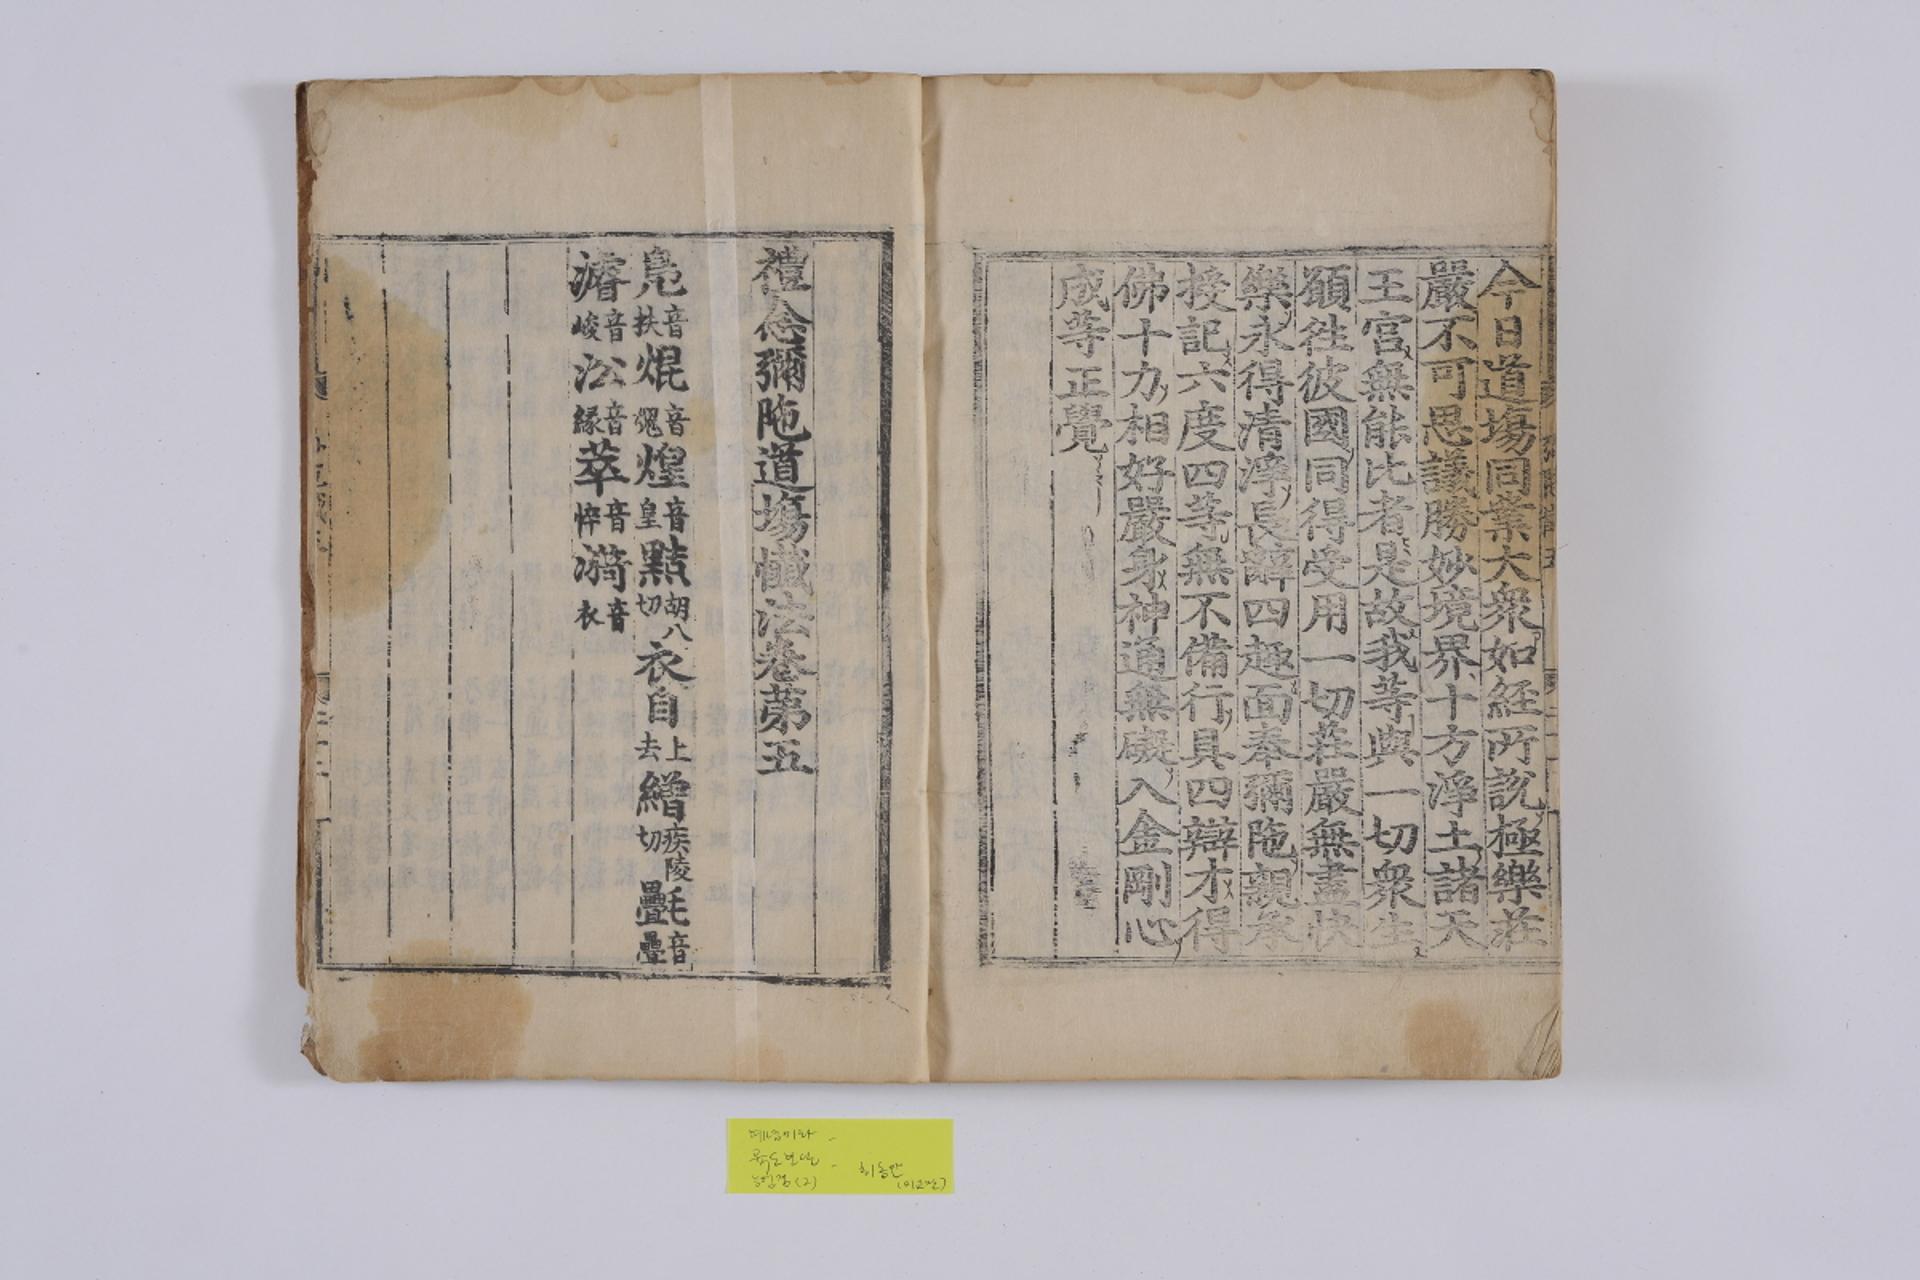 今日道場同業大衆如経所說極樂莊
嚴不可思議勝妙境界十方淨土諸天
王宮無能比者是故我等與一切衆生
願徃彼國同得受用一切莊嚴無盡快
樂永得清淨長辭四趣面奉彌陁親承
授記六度四等無不備行具四辯才得
佛十力相好嚴身神通無礙入金剛心
成等正覺
禮念彌陁道場懺法卷第五
鳧音扶焜音䰟煌音皇黠胡八切衣自上去繒疾陵切㲲音疊
濬音峻㳂音緣萃音悴漪音衣